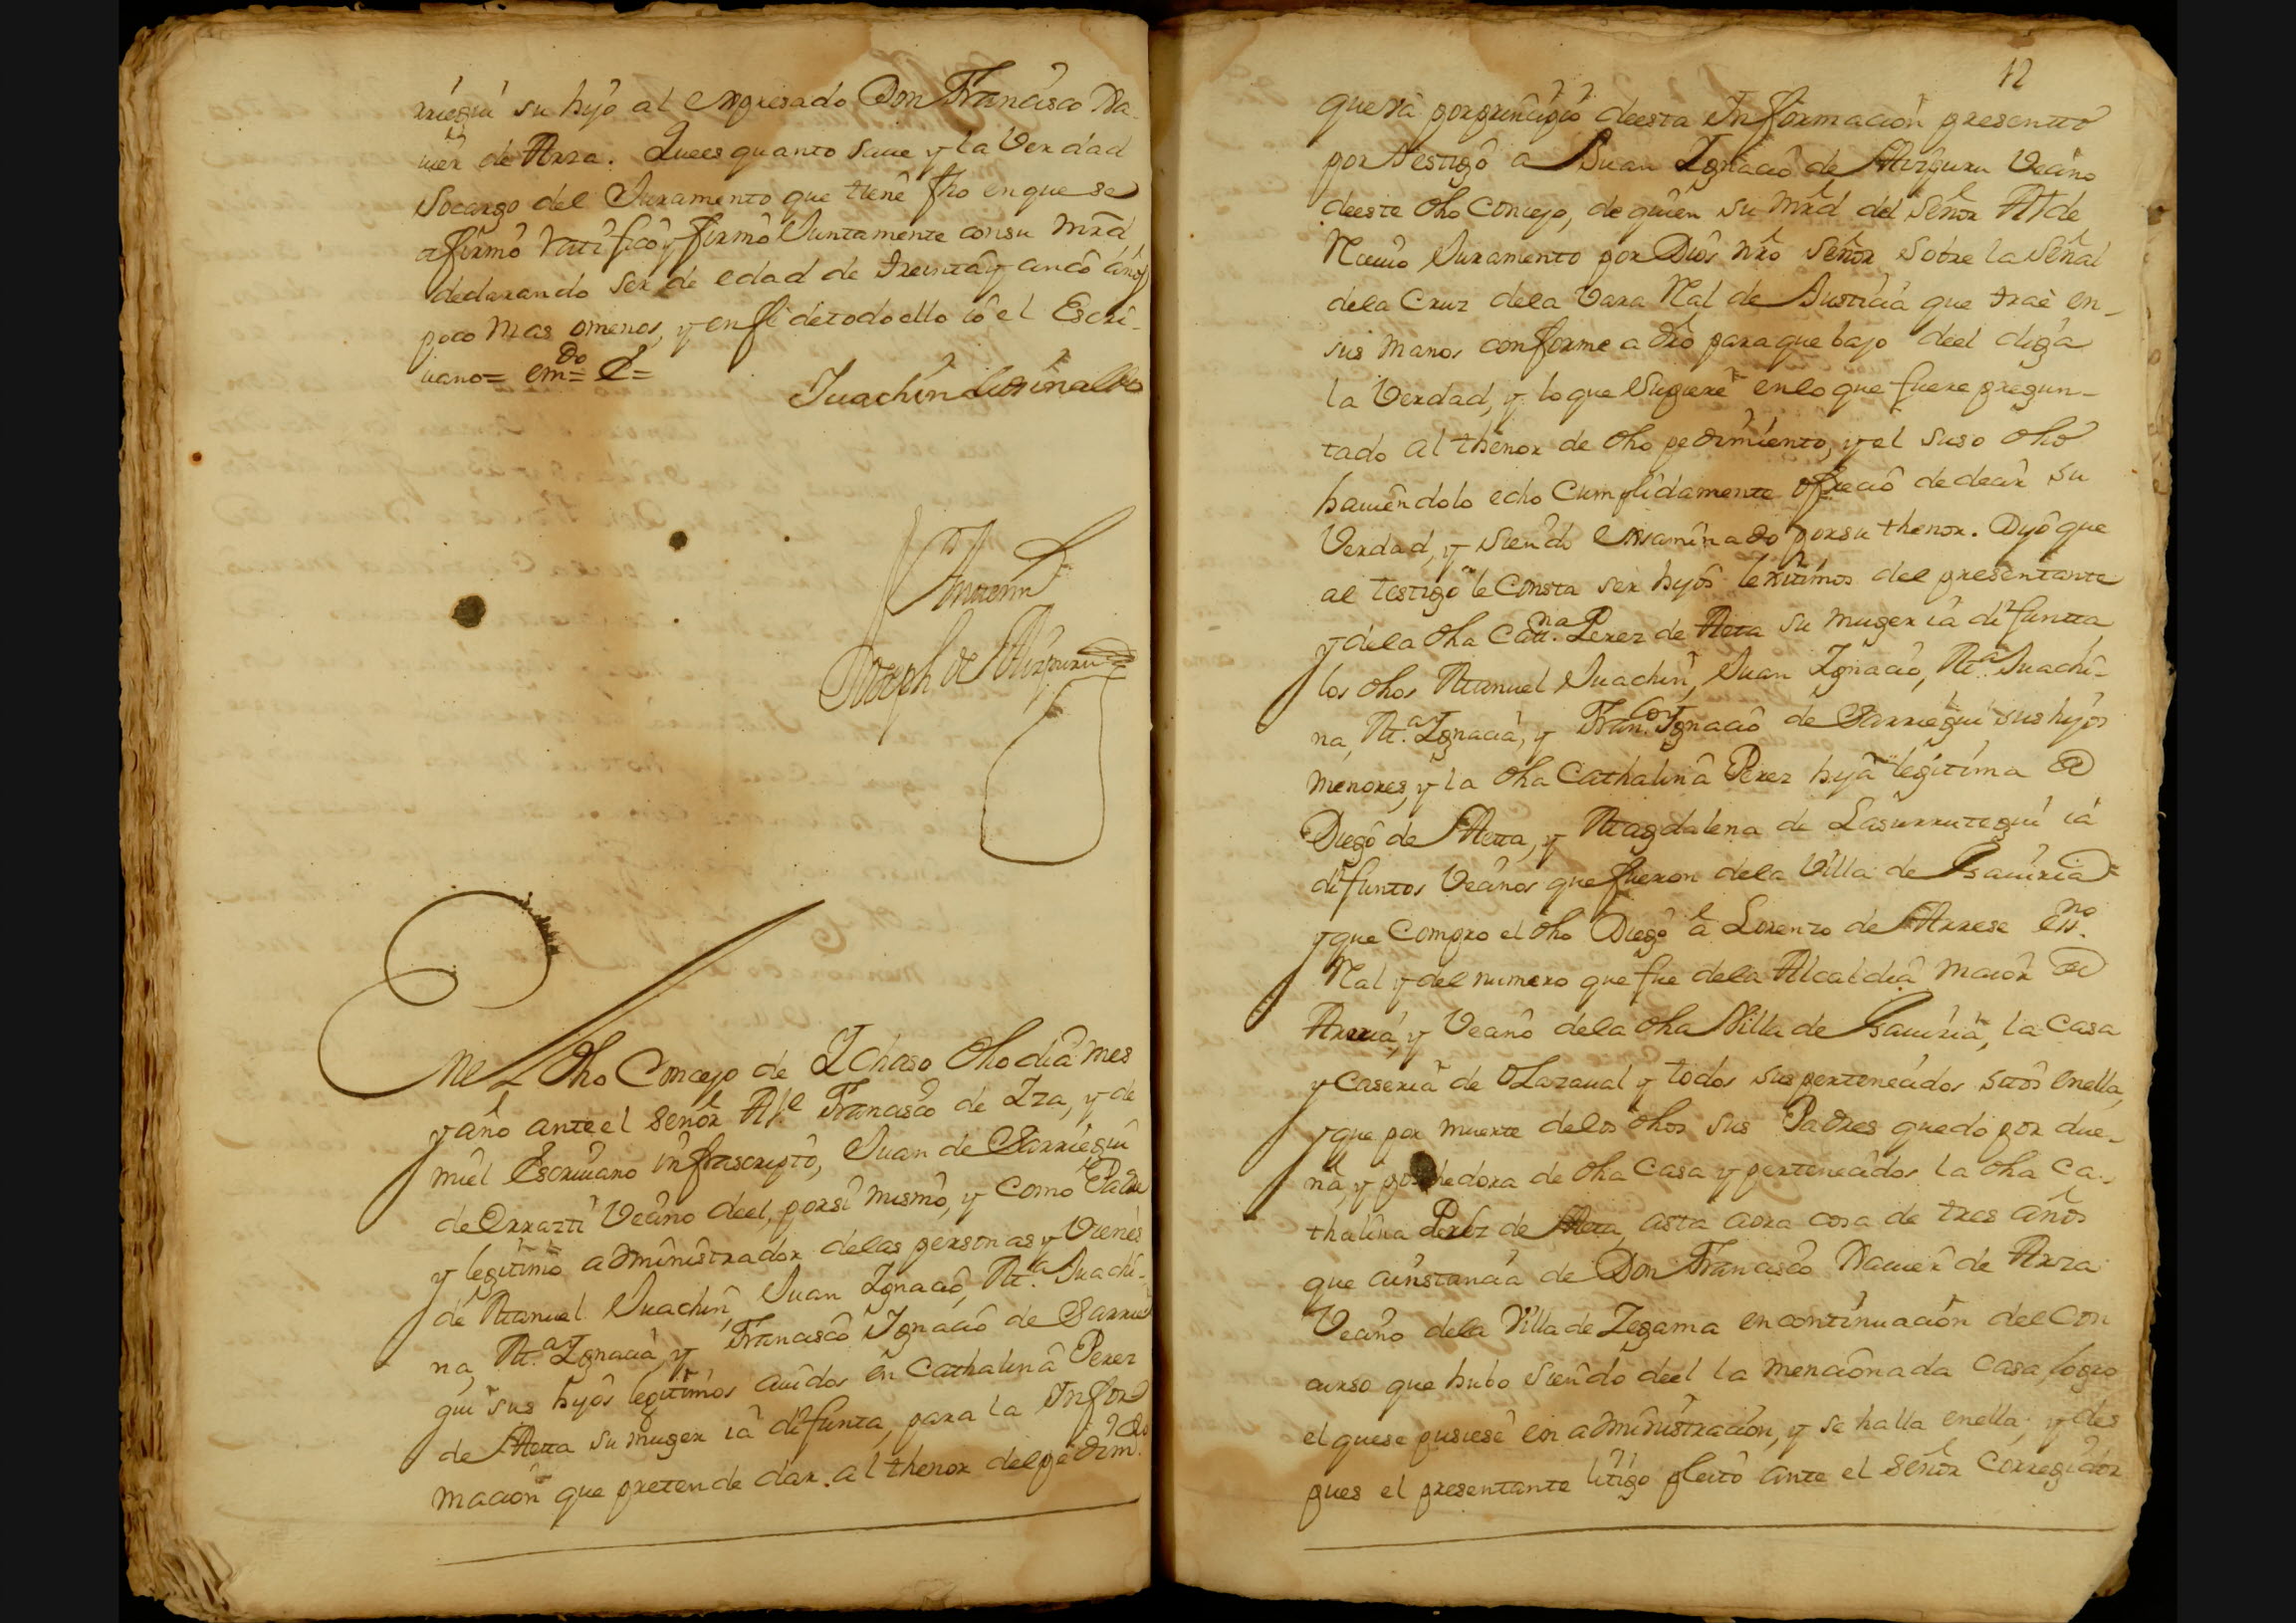 rriegui su hijo al expresado Don Francisco Xa-
uier de Arza. Quees quanto saue y la Verdad
Socargo del Juramento que tiene fho enque se
afirmò ratificò y firmò Juntamente consu Mrd
declarando ser de edad de treinta y cinco años
poco mas omenos, y enfe detodo ello io el Escri-
uano= em.do= e=
Juachin
Antemi
Joseph de Aizpuru
Enel dho Concejo de Ichaso dho dia mes
y año ante el señor Al.e Francisco de Iza, y de
mi el Escriuano infrascripto, Juan de Sarriegui
de Orrazti Vecino deel, porsi mismo, y como Padre
y legitimo administrador delas personas y Vienes
de Manuel Juachin, Juan Ignacio, M.a Juachi-
na, M.a Ignacia, y Francisco Ignacio de Sarrie
gui sus hijos legitimos auidos en Cathalina Perez
de Aetta su muger ia difunta, para la Infor
macion que pretende dar al thenor del pedim.to
12
que và porprincipio deesta Informacion presentto
por testigo a Juan Ignacio de Aizpuru Vecino
deeste dho Concejo, de quien su Mrd del Señor Alde
Reciuio Juramento por Dios nro Señor sobre la Señal
dela Cruz dela Vara Real de Justicia que traè en-
sus manos conforme a dro paraque bajo deel diga
la Verdad, y loque Supiere enlo que fuere pregun-
tado al thenor de dho pedimiento, y el suso dho
hauiendolo echo Cumplidamente ofrecio de decir su
Verdad, y siendo Examinado porsu thenor. Dijo que
al testigo le Consta ser hijos lexitimos del presentante
y dela dha Catt.na Perez de Aetta su muger ia difuntta
los dhos Manuel Juachin, Juan Ignacio, M.a Juachi-
na, M.a Ignacia, y Fran.co Ignacio de Sarriegui sus hijos
menores, y la dha Cathalina Perez hija legitima de
Diego de Aetta, y Magdalena de Lasurrutegui ia
difuntos Vecinos que fueron dela Villa de Gauiria=
y que compro el dho Diego à Lorenzo de Arrese Ess.no
Real y del numero que fue dela Alcaldia maior de
Arería, y Vecino dela dha Villa de Gauiria, la Casa
y Caseria de Olazaual y todos sus pertenecidos sitos enella,
y que por muerte delos dhos sus Padres quedò por due-
ña, y poshedora de dha Casa y pertenecidos la dha Ca-
thalina Perez de Aetta, asta aora cosa de tres años
que ainstancia de Don Francisco Xauier de Arza
Vecino dela Villa de Zegama encontinuacion del Con
curso que hubo siendo deel la mencionada Casa, logro
el quese pusiese en administracion, y se halla enella, y des
pues el presentante litigo pleito ante el Señor Corregidor